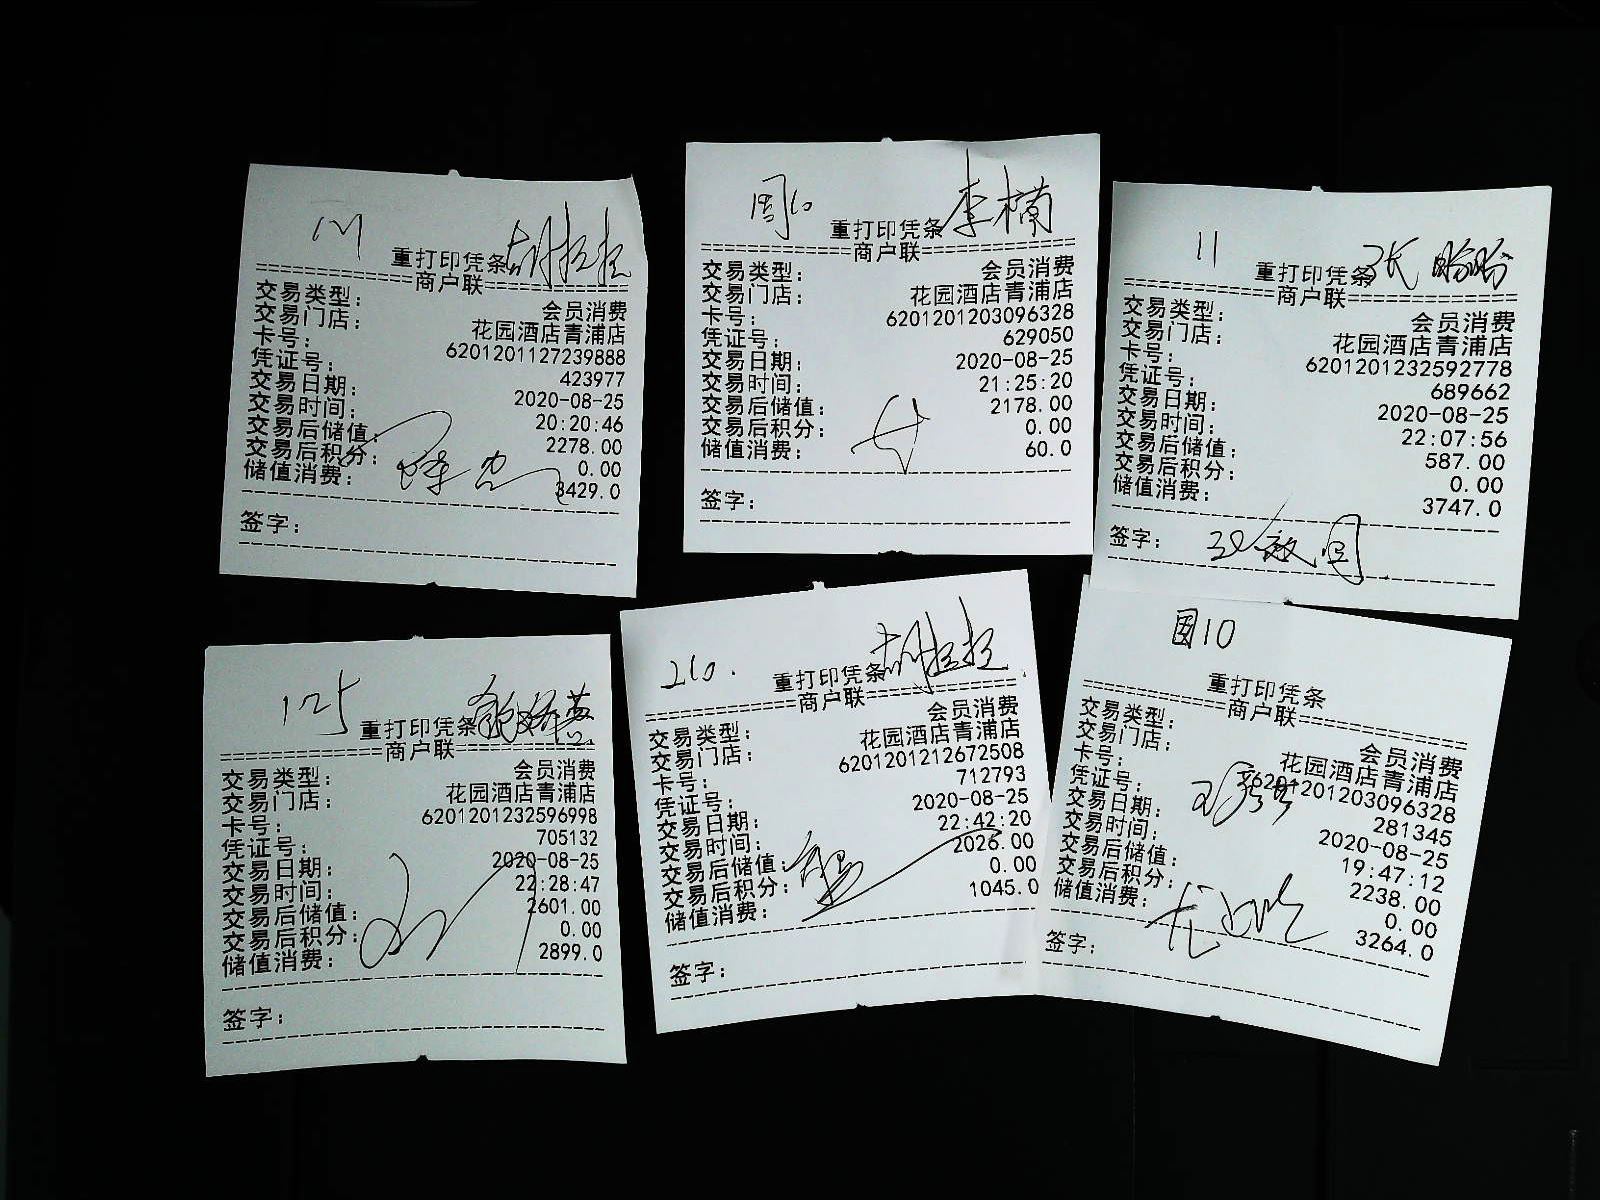 李楠
重打印凭条
============商户联============
交易类型: 会员消费
交易门店: 花园酒店青浦店
卡号: 6201201127239888
凭证号: 423977
交易日期: 2020-08-25
交易时间: 20:20:46
交易后储值: 2278.00
交易后积分: 0.00
储值消费: 3429.0
签字:
重打印凭条
============商户联============
交易类型: 会员消费
交易门店: 花园酒店青浦店
卡号: 6201201203096328
凭证号: 629050
交易日期: 2020-08-25
交易时间: 21:25:20
交易后储值: 2178.00
交易后积分: 0.00
储值消费: 60.0
签字:
11
张盼盼
重打印凭条
============商户联============
交易类型: 会员消费
交易门店: 花园酒店青浦店
卡号: 6201201232592778
凭证号: 689662
交易日期: 2020-08-25
交易时间: 22:07:56
交易后储值: 587.00
交易后积分: 0.00
储值消费: 3747.0
签字:
125
重打印凭条
============商户联============
交易类型: 会员消费
交易门店: 花园酒店青浦店
卡号: 6201201232596998
凭证号: 705132
交易日期: 2020-08-25
交易时间: 22:28:47
交易后储值: 2601.00
交易后积分: 0.00
储值消费: 2899.0
签字:
210.
重打印凭条
============商户联============
交易类型: 会员消费
交易门店: 花园酒店青浦店
卡号: 6201201212672508
凭证号: 712793
交易日期: 2020-08-25
交易时间: 22:42:20
交易后储值: 2026.00
交易后积分: 0.00
储值消费: 1045.0
签字:
国10
重打印凭条
============商户联============
交易类型: 会员消费
交易门店: 花园酒店青浦店
卡号: 6201201203096328
凭证号: 281345
交易日期: 2020-08-25
交易时间: 19:47:12
交易后储值: 2238.00
交易后积分: 0.00
储值消费: 3264.0
签字: